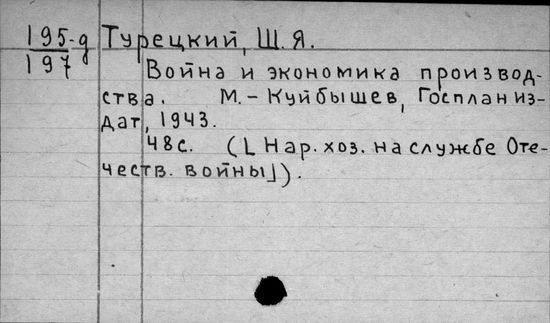 195-д Турецкий, Ш. Я.
197
Война и экономика производ-
ства. М.-Куйбышев, Госпланиз-
дат, 1943.
48с. (⌊Нар. хоз. на службе Оте-
честв. войны⌋).